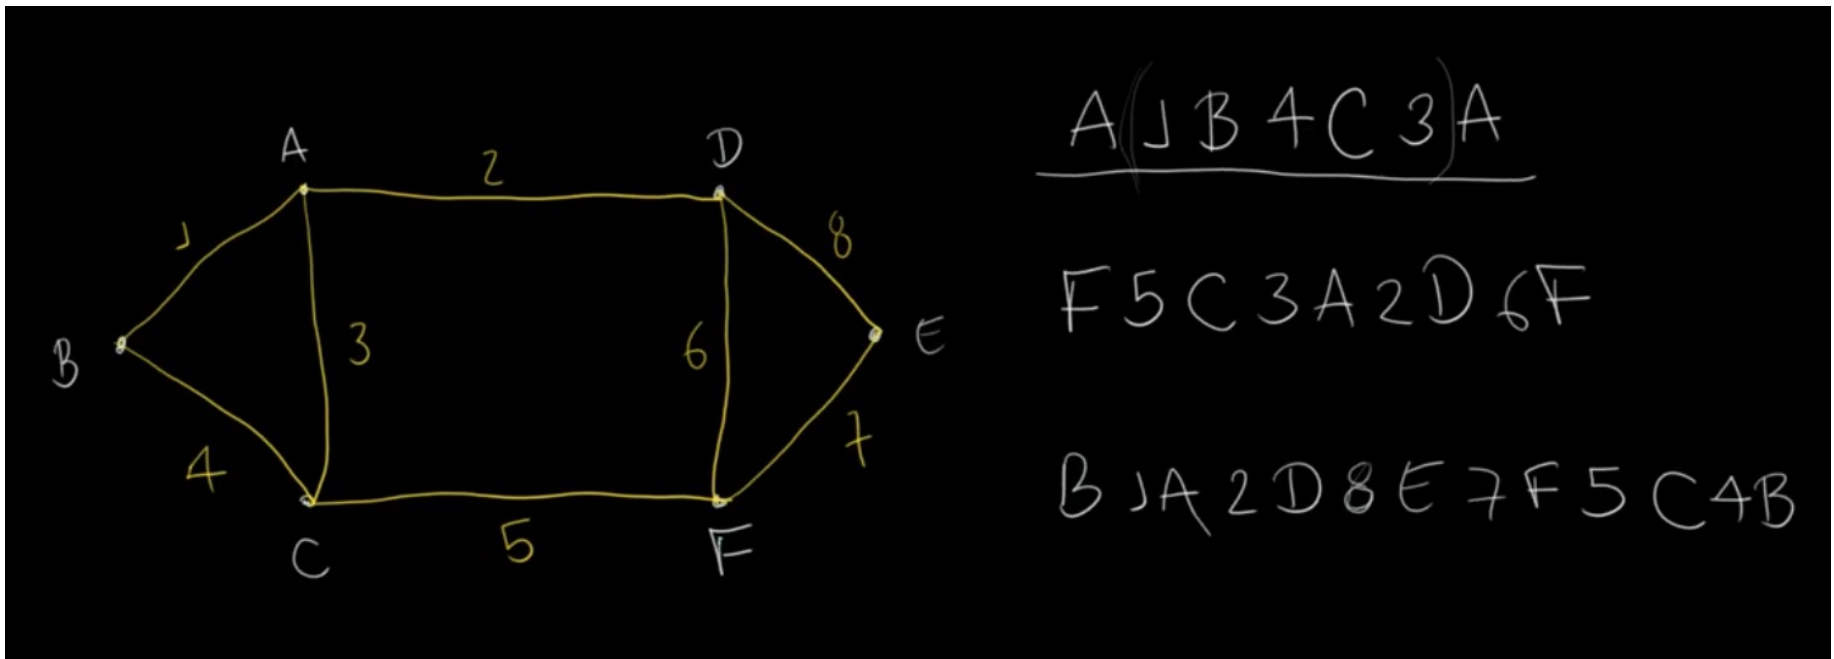 A
D
2
1
8
B
3
6
E
4
7
5
C
F
A(1B4C3)A
F5C3A2D6F
B1A2D8E7F5C4B